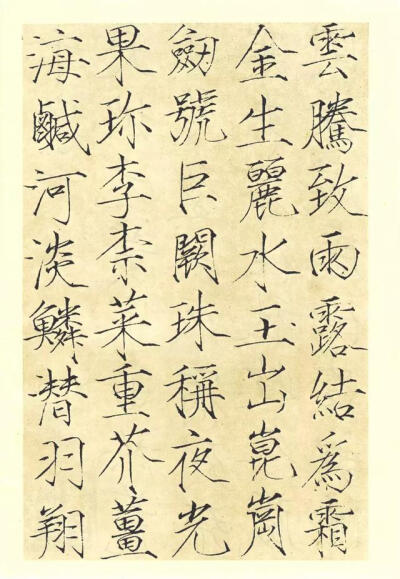 雲騰致雨露結為霜
金生麗水玉出崑崗
劒號巨闕珠稱夜光
果珎李柰菜重芥薑
海鹹河淡鱗潛羽翔